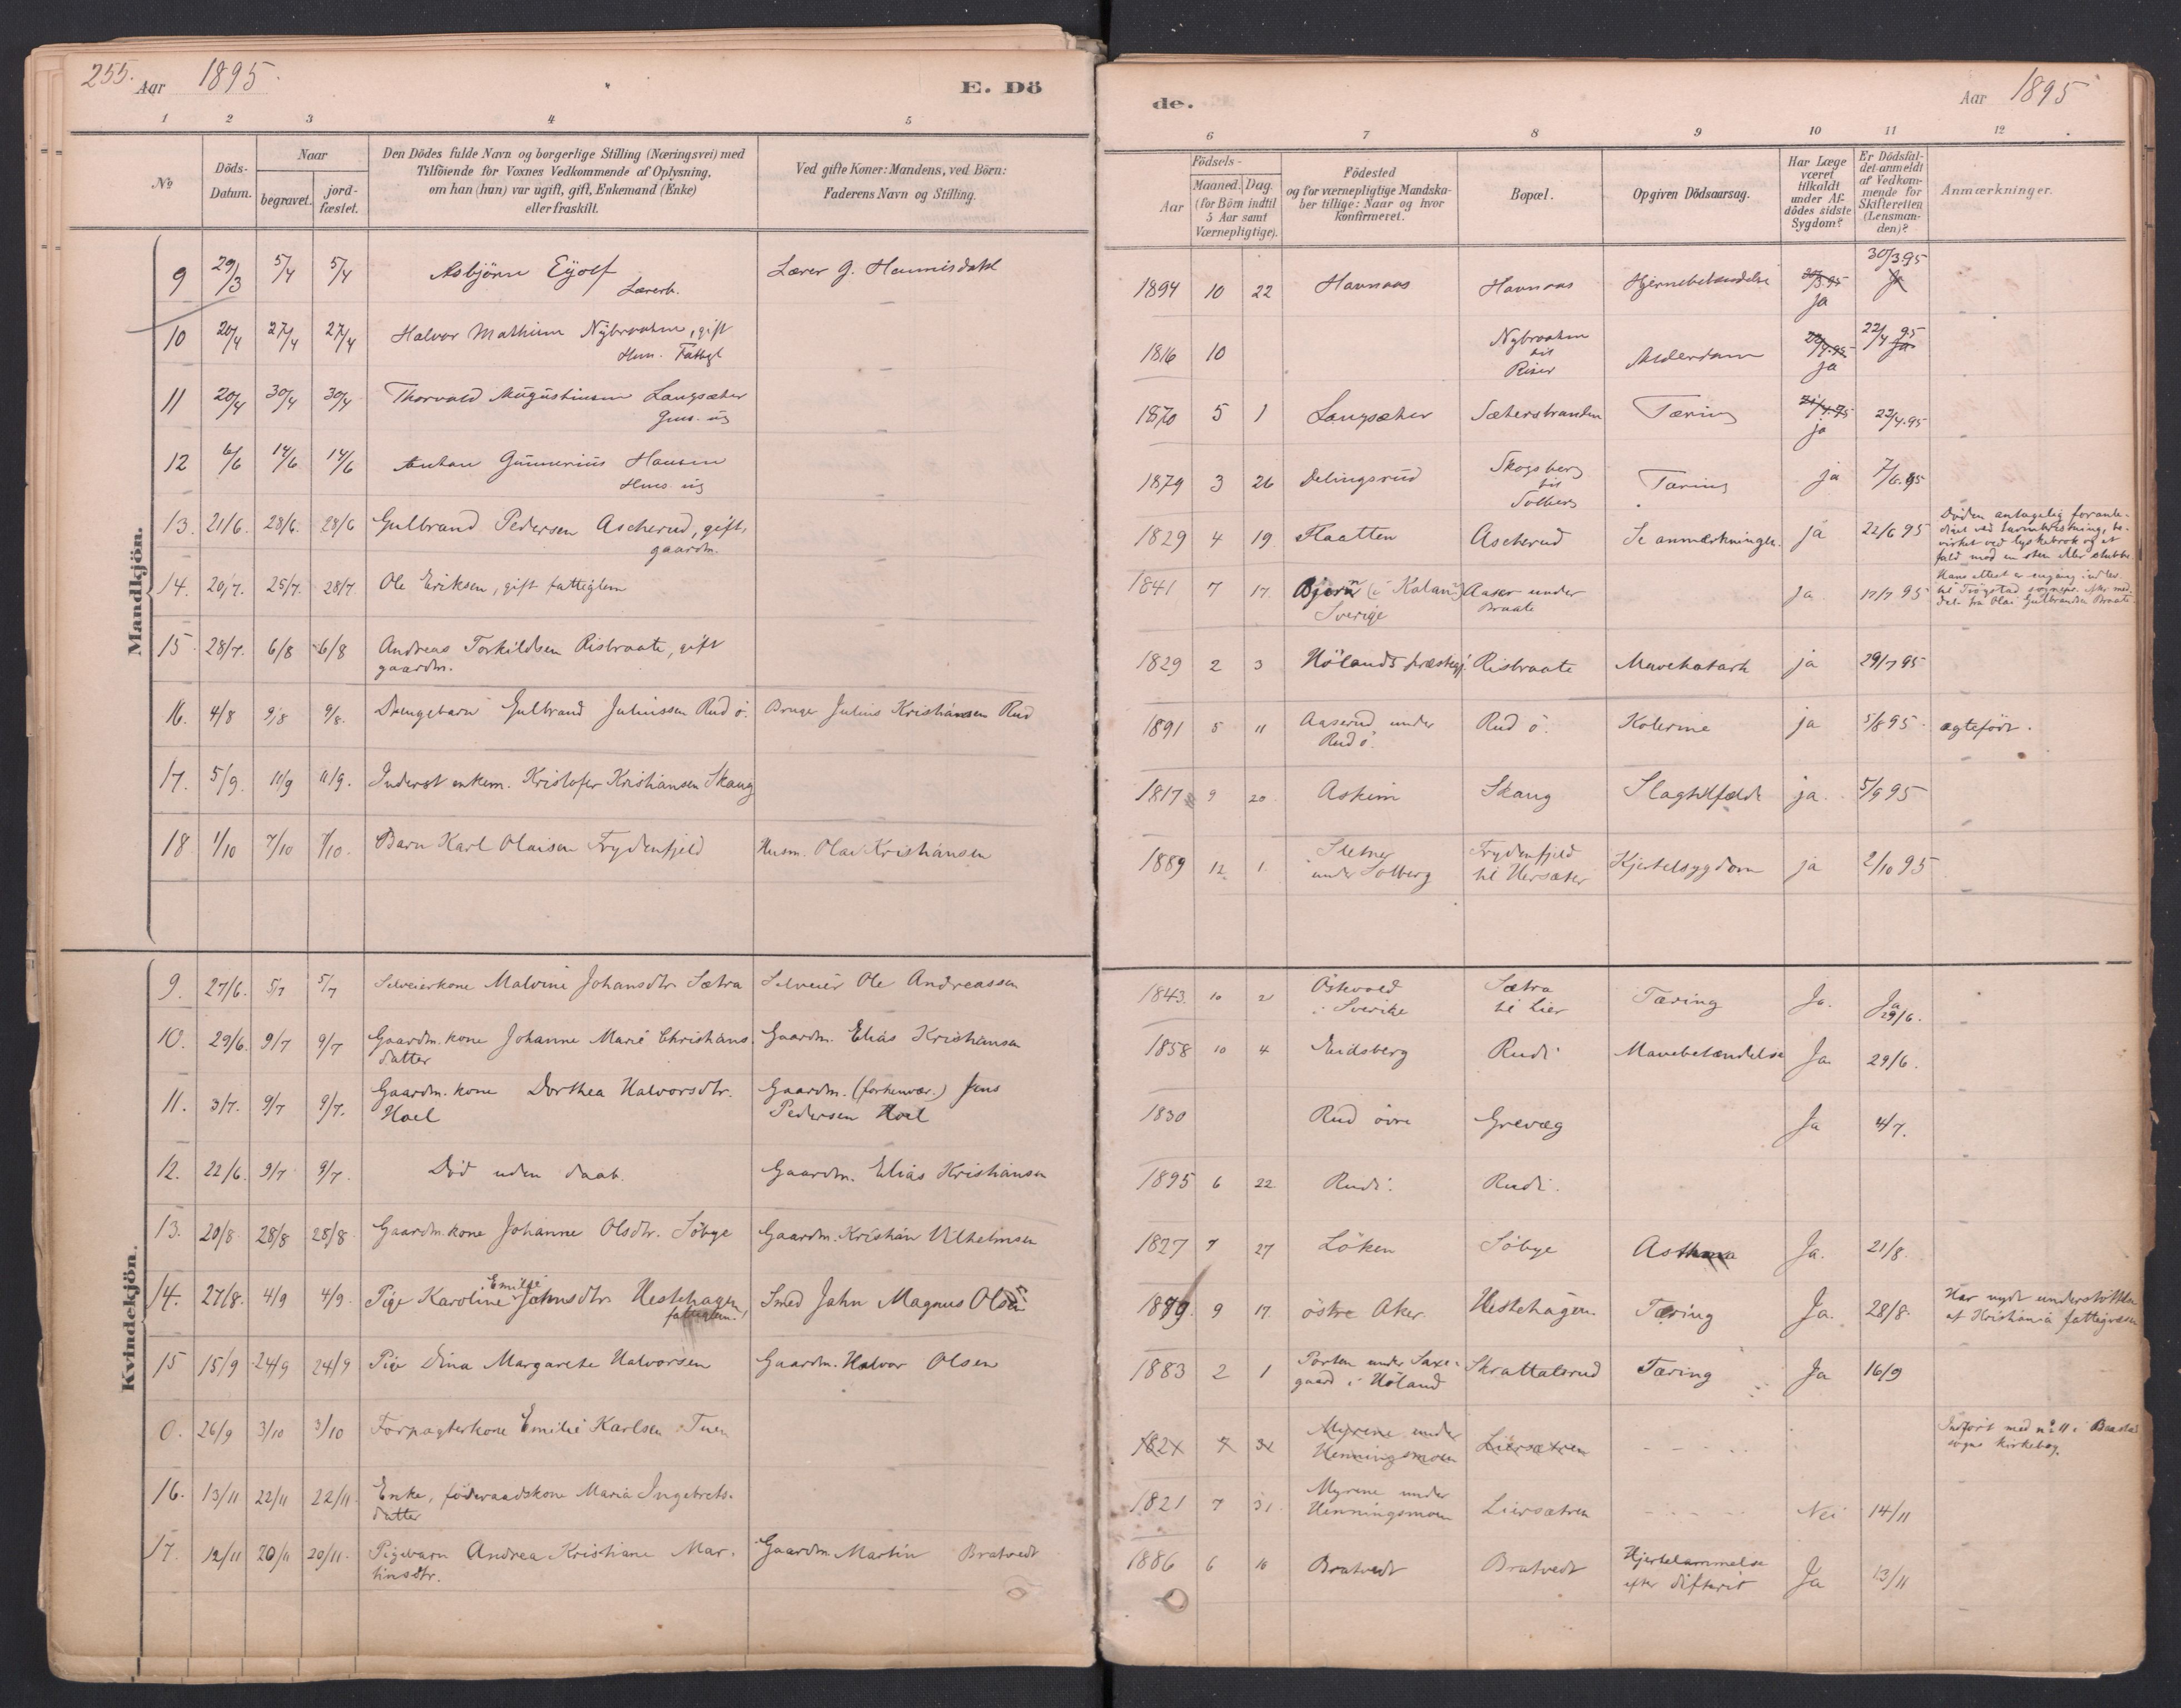 255. Aar 1895. E. Dö
1 2 3 4 5
No Döds-Datum. Naar begravet. jordfæstet. Den Dödes fulde Navn og borgerlige Stilling (Næringsvei) med
Tilföiende for Voxnes Vedkommende af Oplysning,
om han (hun) var ugift, gift, Enkemand (Enke)
eller fraskilt.
Ved gifte Koner: Mandens, ved Börn:
Faderens Navn og Stilling.
Mandkjön.
9 29/3 5/4 5/4 Asbjörn Eyolf Lærerb. Lærer G.
10 20/4 27/4 27/4 Halvor Mathisen Nybraaten, gift
Hsm. Fattigl
11 20/4 30/4 30/4 Thorvald Augustinsen Langsæter
Gms. ug
12 6/6 14/6 14/6 Anton Gunnerius Hansen
Hms. ug
13. 21/6. 28/6. 28/6 Gulbrand Pedersen Ascherud, gift,
gaardm.
14. 20/7. 25/7. 28/7 Ole Eriksen, gift fattiglem
15 28/7. 6/8 6/8 Andreas Torkildsen Risbraate, gift
gaardm.
16. 4/8 9/8 9/8. Drengebarn Gulbrand Juliussen Rud ö. Bruger Julius Kristiansen Rud
17. 5/9. 11/9 11/9. Inderst enkem. Kristofer Kristiansen Skaug
18 1/10 7/10 7/10. Barn Karl Olaisen Frydenfjeld Husm. Olai Kristiansen
Kvindekjön.
9. 27/6. 5/7 5/7 Selveierkone Malvine Johansdtr. Sætra Selveier Ole Andreassen
10. 29/6. 9/7 9/7 Gaardm. kone Johanne Marie Christians- Gaardm. Elias Kristiansen
datter
11. 3/7. 9/7 9/7. Gaardm. kone Dorthea Halvorsdtr. Gaardm. (forhenvær.) Jens
Hoel Pedersen Hoel
12. 22/6. 9/7 9/7. Död uden daab. Gaardm. Elias Kristiansen
13. 20/8 28/8 28/8 Gaardm. kone Johanne Olsdtr. Söbye Gaardm. Kristian Vilhelmsen
14. 27/8. 4/9 4/9. Pige Karoline Emilie Johnsdtr. Hestehagen, Smed John Magnus Olsen
fattiglem.
15 15/9 24/9 24/9 Pige Dina Margarete Halvorsen Gaardm. Halvor Olsen
0. 26/9 3/10 3/10 Forpagterkone Emilie Karlsen Tuen
16. 13/11 22/11 22/11 Enke, föderaadskone Maria Ingebrets-
datter
17. 12/11 20/11 20/11. Pigebarn Andrea Kristiane Mar- Gaardm. Martin Bratvedt
tinsdtr.
de. Aar 1895
6 7 8 9 10 11 12
Födsels-
Aar Maaned. Dag.
(for Börn indtil
5 Aar samt
Værnepligtige).
Födested
og for værnepligtige Mandska-
ber tillige: Naar og hvor
konfirmeret.
Bopæl.
Opgiven Dödsaarsag.
Har Læge
været
tilkaldt
under Af-
dödes sidste
Sygdom?
Er Dödsfal-
det anmeldt
af Vedkom-
mende for
Skifteretten
(Lensman-
den)?
Anmærkninger.
1894 10 22 Havnaas Havnaas Hjernebetændelse ja 30/3 95
1816 10 Nybraaten
til
Riser Alderdom ja 22/4 95
1870 5 1 Langsæter Sæterbraaten Tæring ja 22/4.95
1879 3 26 Delingsrud Skogsberg
til
Solberg Tæring ja 7/6.95
1829 4 19 Flaatten Ascherud Se anmærkningen. ja 22/6 95 Döden antagelig foranle-
diget ved tarmbristning, be-
virket ved lyskebrok og et
fald mod en sten eller stubbe.
1841 7 17. Bjorn Aaser under
Sverige Braate ja 17/7 95
1829 2 3 Hölands præstegj. Risbraate Mavekatarh ja 29/7 95
1891 5 11 Aaserud under
Rud ö. Rud ö. Kolerine ja 5/8 95 ægteför.
1817 9 20 Askim Skaug Slagtilfælde ja. 5/9 95
1889 12. 1. Sletner
under Solberg Frydenfjeld
til Hersæter Kjertelsygdom ja 2/10 95
1843. 10 21 Östervold
i Sverike Sætra
til Lier Tæring Ja. Ja
29/6.
1858 10 4 Eidsberg Rudi Mavebetændelse Ja 29/6.
1830 Rud övre Grevæg Ja 4/7.
1895 6 22 Rudi. Rudi.
1827 7 27 Löken Söbye Asthma Ja. 21/8.
1879. 9 17. östre Aker. Hestehagen. Tæring Ja. 28/8. Har nydt understöttelse
af Kristiania fattigvæsen
1883 2 1 Porten under Saxe-
gaard i Höland Skrattalsrud Tæring Ja 16/9
1821 7 31 Myrene under
Henningsmoen Liersætren - - - - Indfört med no 11 i Baastad
sogns kirkebog.
1821 7 31. Myrene under
Henningsmoen Liersætren - - - - Nei 14/11
1886 6 10 Bratvedt Bratvedt Hjertelammelse
efter difterit Ja 13/11